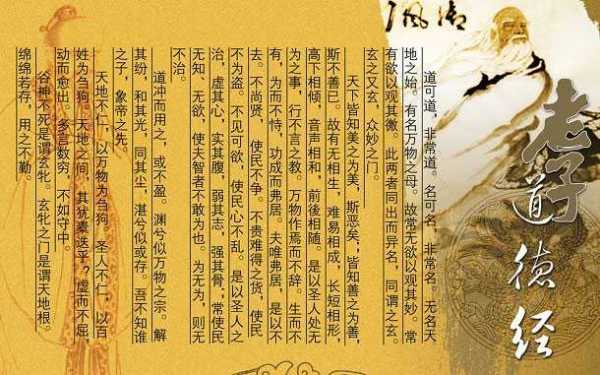 老子
道德经
道可道，非常道。名可名，非常名。无名天
地之始。有名万物之母。故常无欲以观其妙。常
有欲以观其徼。此两者同出而异名，同谓之玄。
玄之又玄，众妙之门。
天下皆知美之为美，斯恶矣；皆知善之为善，
斯不善已。故有无相生，难易相成，长短相形，
高下相倾，音声相和，前後相随。是以圣人处无
为之事，行不言之教。万物作焉而不辞。生而不
有，为而不恃，功成而弗居。夫唯弗居，是以不
去。不尚贤，使民不争。不贵难得之货，使民
不为盗。不见可欲，使民心不乱。是以圣人之
治，虚其心，实其腹，弱其志，强其骨；常使民
无知、无欲，使夫智者不敢为也。为无为，则无
不治。
道冲而用之，或不盈。渊兮似万物之宗。解
其纷，和其光，同其尘，湛兮似或存。吾不知谁
之子，象帝之先。
天地不仁，以万物为刍狗。圣人不仁，以百
姓为刍狗。天地之间，其犹橐迭乎？虚而不屈
动而愈出。多言数穷，不如守中。
谷神不死是谓玄牝。玄牝之门是谓天地根。
绵绵若存，用之不勤。